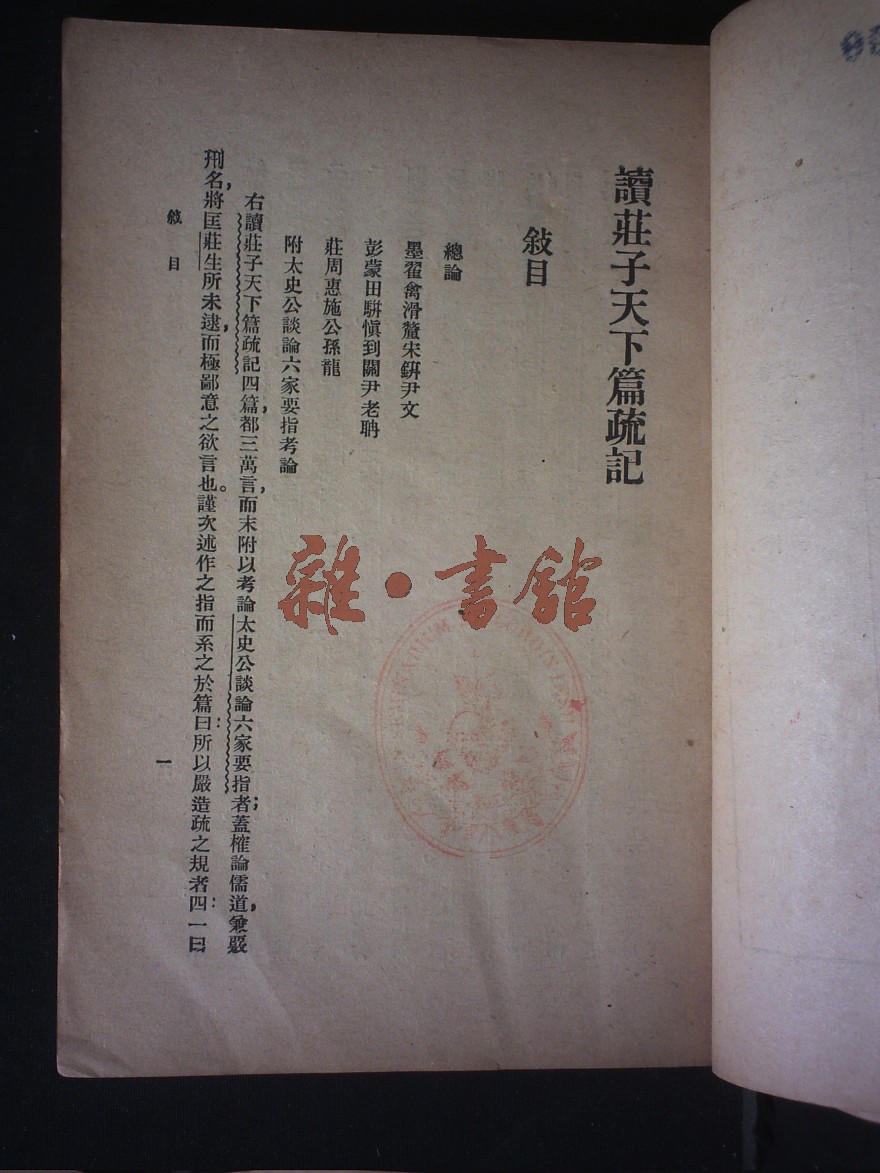 讀莊子天下篇疏記
敍目
總論
墨翟禽滑釐宋鈃尹文
彭蒙田駢愼到關尹老聃
莊周惠施公孫龍
附太史公談論六家要指考論
右讀莊子天下篇疏記四篇，都三萬言，而末附以考論太史公談論六家要指者；蓋榷論儒道，兼覈
刑名，將匡莊生所未逮，而極鄙意之欲言也。謹次述作之指而系之於篇曰：所以嚴造疏之規者四：一曰
敍目
一
雜·書館